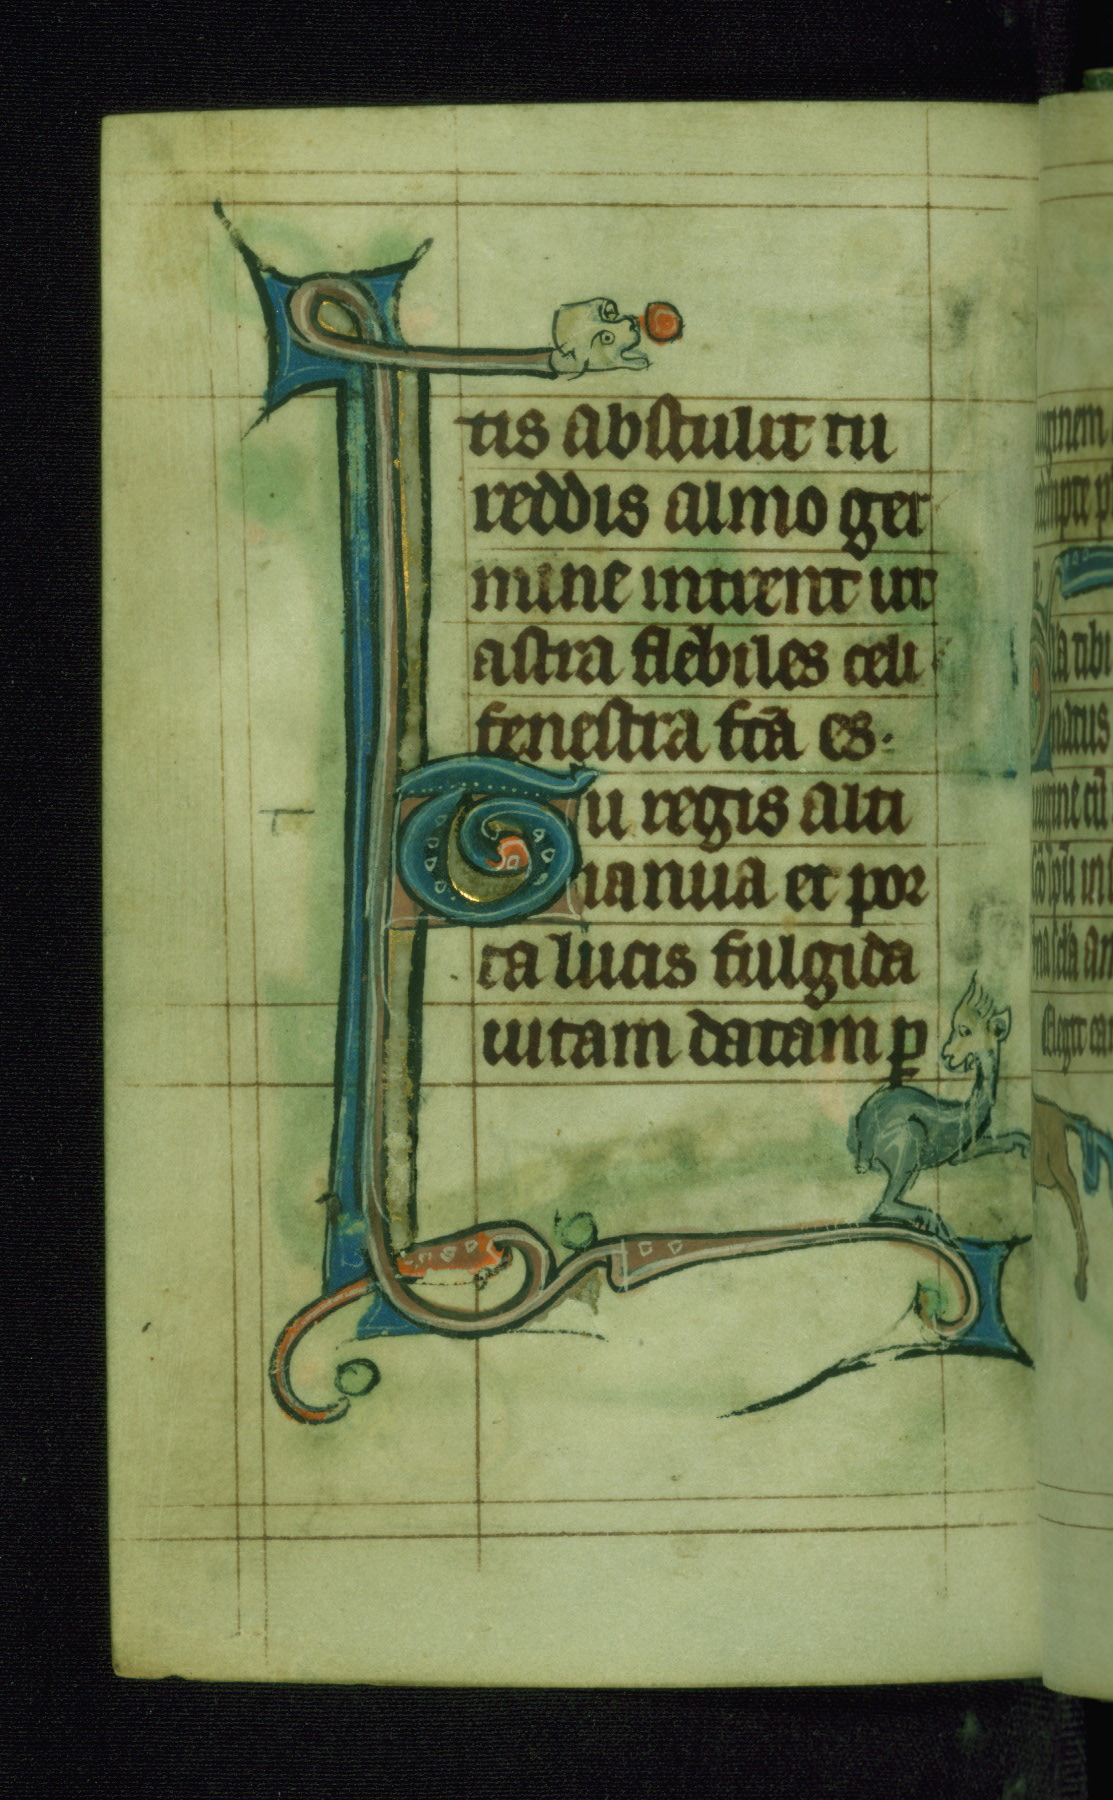 tis abstulit tu
reddis almo ger
mine intrent ut
astra flebiles celi
fenestra fcā es.
Tu regis alti
ianua et por
ta lucis fulgida
uitam datam p
la tibi
natus